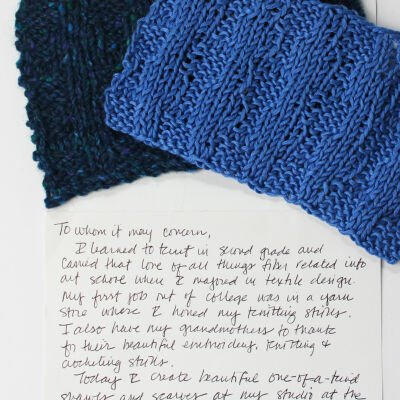 To whom it may concern,
I learned to knit in second grade and
carried that love of all things fiber related into
art school where I majored in textile design.
My first job out of college was in a yarn
store where I honed my knitting skills.
I also have my grandmothers to thank
for their beautiful embroidery, knitting &
crocheting skills.
Today I create beautiful one-of-a-kind
shawls and scarves at my studio at the